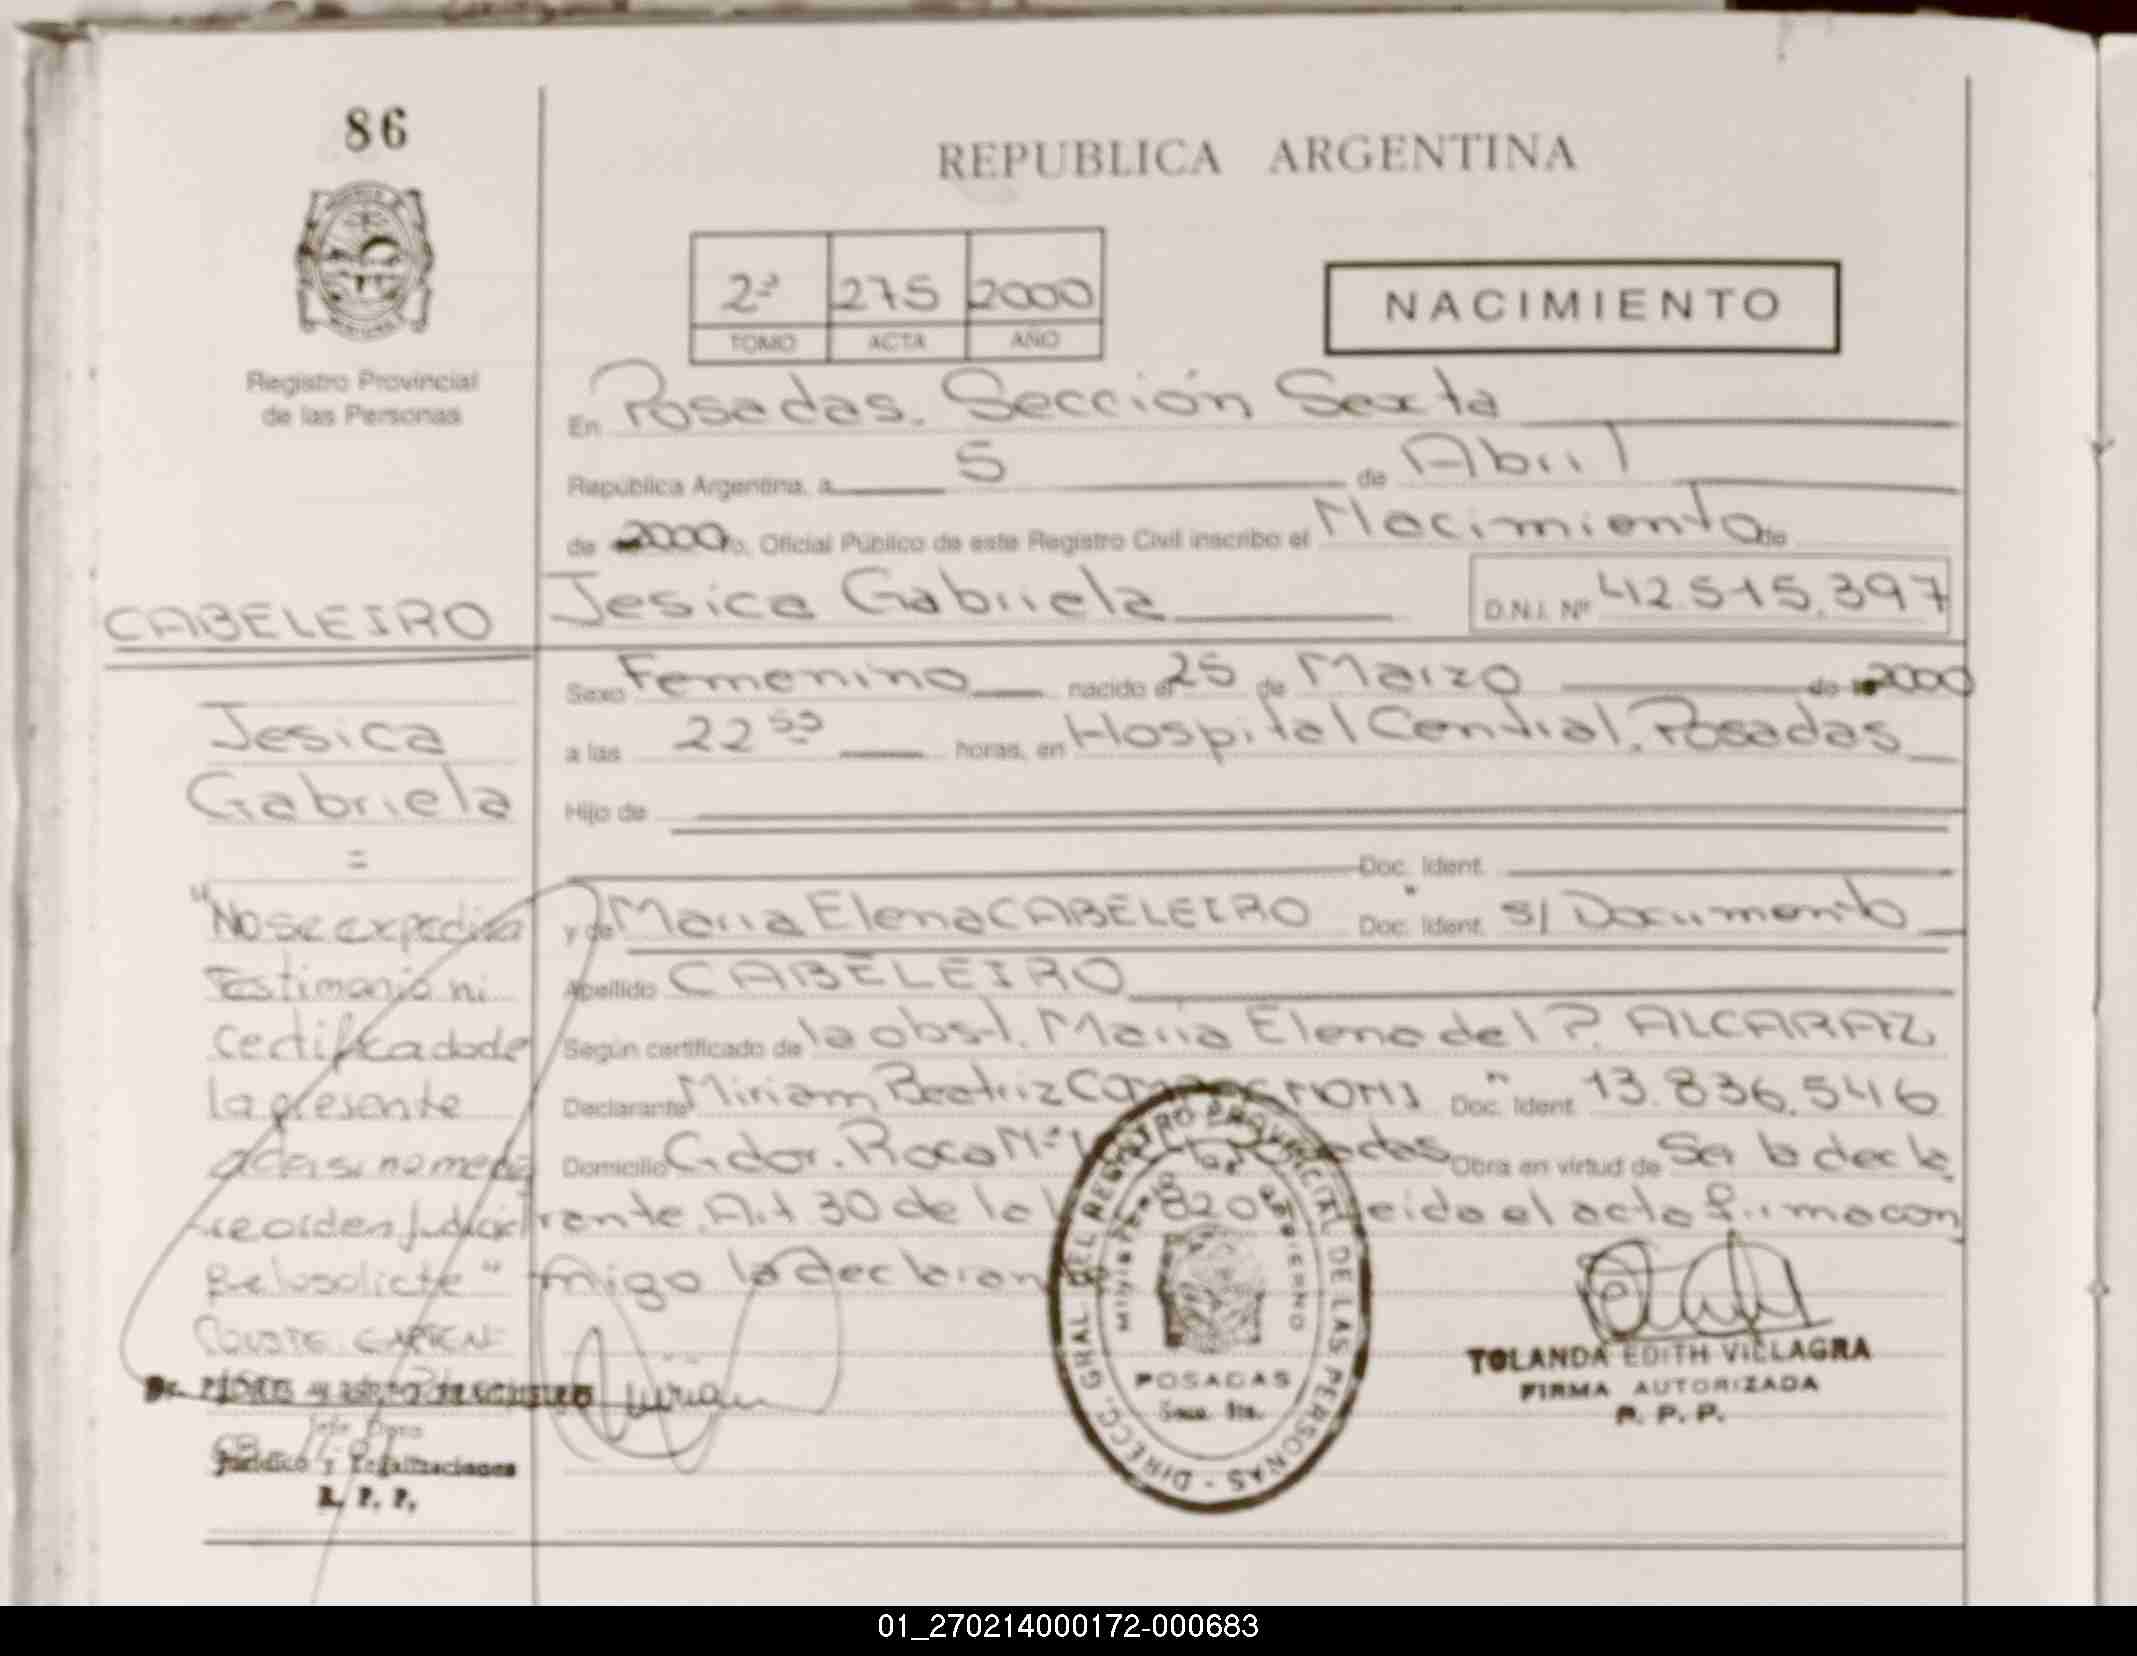 86
REPUBLICA ARGENTINA
2ª 275 2000
TOMO ACTA AÑO
NACIMIENTO
Registro Provincial
de las Personas
En Posadas. Sección Sexta
República Argentina, a 5 de Abril
de 2000 yo, Oficial Público de este Registro Civil inscribo el Nacimiento de
CABELEIRO
Jesica Gabriela D.N.I. Nº 42.515.397
Sexo Femenino nacido el 25 de Marzo de 2000
a las 22 55 horas, en Hospital Central, Posadas
Hijo de
Doc. Ident.
y de Maria Elena CABELEIRO Doc. Ident. s/ Documento
Apellido CABELEIRO
Según certificado de la obst. Maria Elena del P. ALCARAZ
Declarante Miriam Beatriz Doc. Ident. 13.836.546
Domicilio Gdor. Roca Nº Posadas Obra en virtud de Ser la decla
rante. Art 30 de la 8204 Leida el acta firma con
migo la declaran
Jesica
Gabriela
=
"No se expedira
Testimonio ni
Certificado de
la presente
acta si no media
re orden judicial
que lo solicite"
Dr.
Jurídico y Legalizaciones
R. P. P.
Miriam
DIRECC. GRAL. DEL REGISTRO PROVINCIAL DE LAS PERSONAS
POSADAS
Secc. 6ta.
YOLANDA EDITH VILLAGRA
FIRMA AUTORIZADA
R. P. P.
01_270214000172-000683